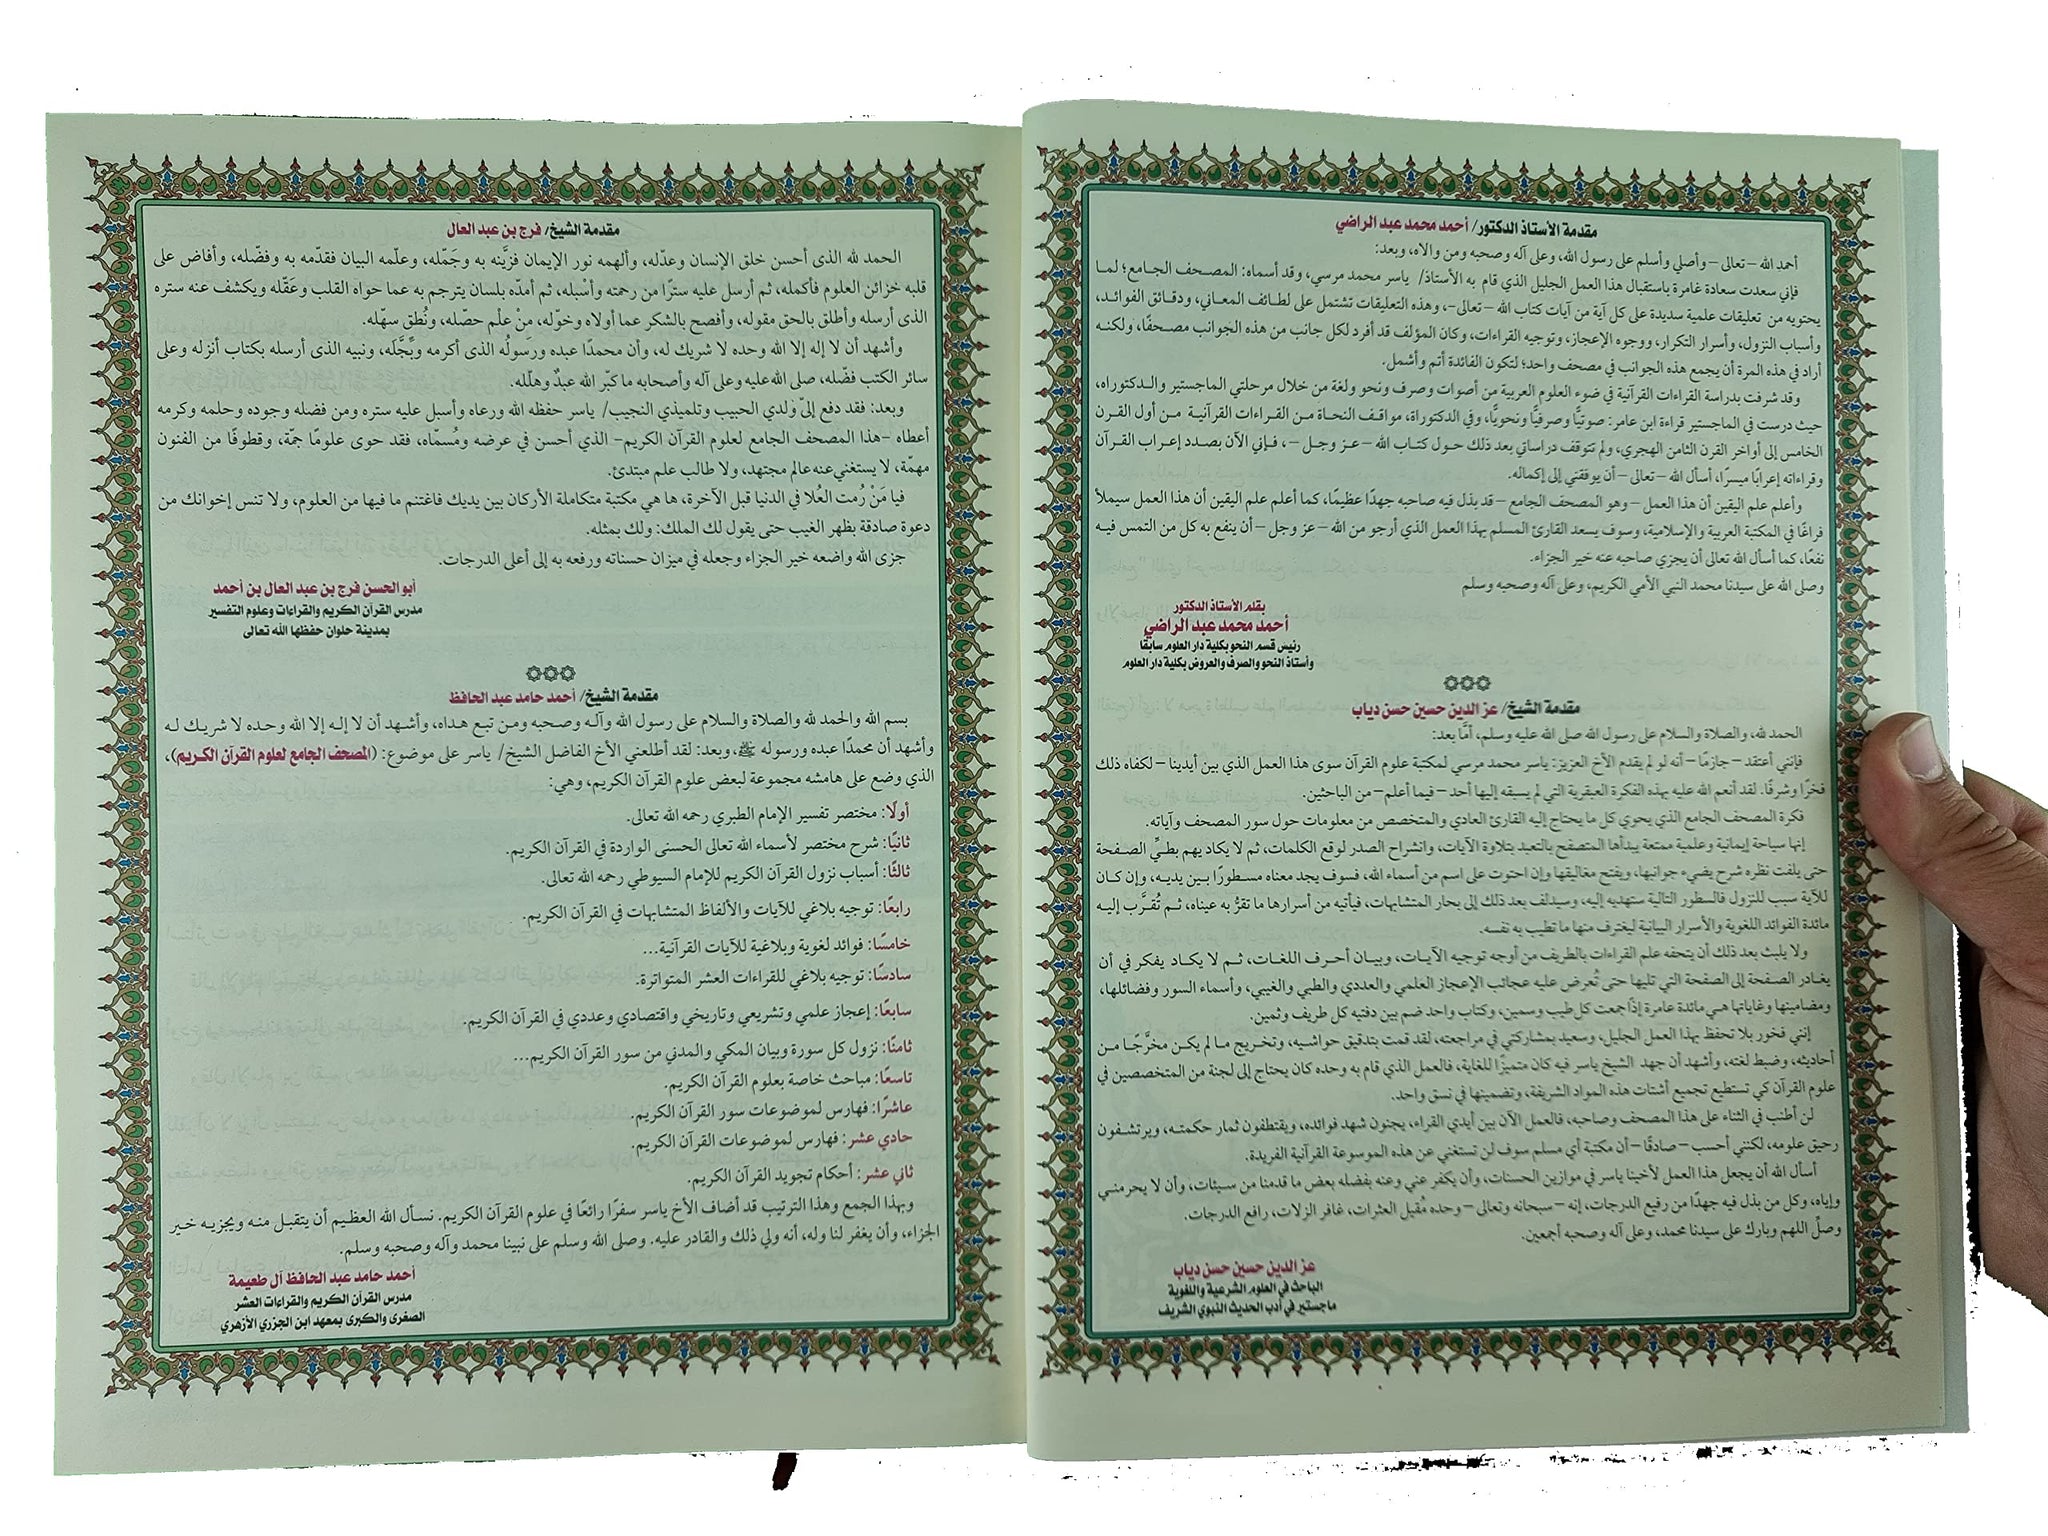 مقدمة الأستاذ الدكتور/ أحمد محمد عبد الراضي
أحمد الله –تعالى –وأصلي وأسلم على رسول الله، وعلى آله وصحبه ومن والاه، وبعد:
فإني سعدت سعادة غامرة باستقبال هذا العمل الجليل الذي قام به الأستاذ/ ياسر محمد مرسي، وقد أسماه: المصحف الجامع؛ لما
يحتويه من تعليقات علمية سديدة على كل آية من آيات كتاب الله –تعالى–، وهذه التعليقات تشتمل على لطائف المعاني، ودقائق الفوائد،
وأسباب النزول، وأسرار التكرار، ووجوه الإعجاز، وتوجيه القراءات، وكان المؤلف قد أفرد لكل جانب من هذه الجوانب مصحفًا، ولكنه
أراد في هذه المرة أن يجمع هذه الجوانب في مصحف واحد؛ لتكون الفائدة أتم وأشمل.
وقد شرفت بدراسة القراءات القرآنية في ضوء العلوم العربية من أصوات وصرف ونحو ولغة من خلال مرحلتي الماجستير والدكتوراه،
حيث درست في الماجستير قراءة ابن عامر: صوتيًّا وصرفيًّا ونحويًّا، وفي الدكتوراة، مواقف النحاة من القراءات القرآنية من أول القرن
الخامس إلى أواخر القرن الثامن الهجري، ولم تتوقف دراساتي بعد ذلك حول كتاب الله –عز وجل –، فإني الآن بصدد إعراب القرآن
وقراءاته إعرابًا ميسرًا، أسأل الله –تعالى– أن يوفقني إلى إكماله.
وأعلم علم اليقين أن هذا العمل –وهو المصحف الجامع– قد بذل فيه صاحبه جهدًا عظيمًا، كما أعلم علم اليقين أن هذا العمل سيملأ
فراغًا في المكتبة العربية والإسلامية، وسوف يسعد القارئ المسلم بهذا العمل الذي أرجو من الله –عز وجل –أن ينفع به كل من التمس فيه
نفعًا، كما أسأل الله تعالى أن يجزي صاحبه عنه خير الجزاء.
وصلى الله على سيدنا محمد النبي الأمي الكريم، وعلى آله وصحبه وسلم
بقلم الأستاذ الدكتور
أحمد محمد عبد الراضي
رئيس قسم النحو بكلية دار العلوم سابقًا
وأستاذ النحو والصرف والعروض بكلية دار العلوم
مقدمة الشيخ/ عز الدين حسين حسن دياب
الحمد لله، والصلاة والسلام على رسول الله صلى الله عليه وسلم، أمَّا بعد:
فإنني أعتقد –جازمًا– أنه لو لم يقدم الأخ العزيز: ياسر محمد مرسي لمكتبة علوم القرآن سوى هذا العمل الذي بين أيدينا –لكفاه ذلك
فخرًا وشرفًا. لقد أنعم الله عليه بهذه الفكرة العبقرية التي لم يسبقه إليها أحد –فيما أعلم– من الباحثين.
فكرة المصحف الجامع الذي يحوي كل ما يحتاج إليه القارئ العادي والمتخصص من معلومات حول سور المصحف وآياته.
إنها سياحة إيمانية وعلمية ممتعة يبدأها المتصفح بالتعبد بتلاوة الآيات، وانشراح الصدر لوقع الكلمات، ثم لا يكاد يهم بطيِّ الصفحة
حتى يلفت نظره شرح يضيء جوانبها، ويفتح مغاليقها وإن احتوت على اسم من أسماء الله، فسوف يجد معناه مسطورًا بين يديه، وإن كان
للآية سبب للنزول فالسطور التالية ستهديه إليه، وسيدلف بعد ذلك إلى بحار المتشابهات، فيأتيه من أسرارها ما تقرُّ به عيناه، ثم تُقرَّب إليه
مائدة الفوائد اللغوية والأسرار البيانية ليغترف منها ما تطيب به نفسه.
ولا يلبث بعد ذلك أن يتحفه علم القراءات بالطريف من أوجه توجيه الآيات، وبيان أحرف اللغات، ثم لا يكاد يفكر في أن
يغادر الصفحة إلى الصفحة التي تليها حتى تُعرض عليه عجائب الإعجاز العلمي والعددي والطبي والغيبي، وأسماء السور وفضائلها،
ومضامينها وغاياتها هي مائدة عامرة إذًا جمعت كل طيب وسمين، وكتاب واحد ضم بين دفتيه كل طريف وثمين.
إنني فخور بلا تحفظ بهذا العمل الجليل، وسعيد بمشاركتي في مراجعته، لقد قمت بتدقيق حواشيه، وتخريج ما لم يكن مخرَّجًا من
أحاديثه، وضبط لغته، وأشهد أن جهد الشيخ ياسر فيه كان متميزًا للغاية، فالعمل الذي قام به وحده كان يحتاج إلى لجنة من المتخصصين في
علوم القرآن كي تستطيع تجميع أشتات هذه المواد الشريفة، وتضمينها في نسق واحد.
لن أطنب في الثناء على هذا المصحف وصاحبه، فالعمل الآن بين أيدي القراء، يجنون شهد فوائده، ويقتطفون ثمار حكمته، ويرتشفون
رحيق علومه، لكنني أحسب –صادقًا– أن مكتبة أي مسلم سوف لن تستغني عن هذه الموسوعة القرآنية الفريدة.
أسأل الله أن يجعل هذا العمل لأخينا ياسر في موازين الحسنات، وأن يكفر عني وعنه بفضله بعض ما قدمنا من سيئات، وأن لا يحرمني
وإياه، وكل من بذل فيه جهدًا من رفيع الدرجات، إنه –سبحانه وتعالى– وحده مُقيل العثرات، غافر الزلات، رافع الدرجات.
وصلِّ اللهم وبارك على سيدنا محمد، وعلى آله وصحبه أجمعين.
عز الدين حسين حسن دياب
الباحث في العلوم الشرعية واللغوية
ماجستير في أدب الحديث النبوي الشريف
مقدمة الشيخ/ فرج بن عبد العال
الحمد لله الذى أحسن خلق الإنسان وعدّله، وألهمه نور الإيمان فزَّينه به وجَمَّله، وعلّمه البيان فقدّمه به وفضّله، وأفاض على
قلبه خزائن العلوم فأكمله، ثم أرسل عليه سترًا من رحمته وأسْبله، ثم أمدّه بلسان يترجم به عما حواه القلب وعَقّله ويكشف عنه ستره
الذى أرسله وأطلق بالحق مقوله، وأفصح بالشكر عما أولاه وخوّله، مِنْ علْم حصّله، ونُطق سهّله.
وأشهد أن لا إله إلا الله وحده لا شريك له، وأن محمدًا عبده ورسولُه الذى أكرمه وبَّجَّله، ونبيه الذى أرسله بكتاب أنزله وعلى
سائر الكتب فضّله، صلى الله عليه وعلى آله وأصحابه ما كبّر الله عبدٌ وهلّله.
وبعد: فقد دفع إلىّ وَلدي الحبيب وتلميذي النجيب/ ياسر حفظه الله ورعاه وأسبل عليه ستره ومن فضله وجوده وحلمه وكرمه
أعطاه –هذا المصحف الجامع لعلوم القرآن الكريم– الذي أحسن في عرضه ومُسمّاه، فقد حوى علومًا جمّة، وقطوفًا من الفنون
مهمّة، لا يستغني عنه عالم مجتهد، ولا طالب علم مبتدئ.
فيا مَنْ رُمت العُلا في الدنيا قبل الآخرة، ها هي مكتبة متكاملة الأركان بين يديك فاغتنم ما فيها من العلوم، ولا تنس إخوانك من
دعوة صادقة بظهر الغيب حتى يقول لك الملك: ولك بمثله.
جزى الله واضعه خير الجزاء وجعله في ميزان حسناته ورفعه به إلى أعلى الدرجات.
أبو الحسن فرج بن عبد العال بن أحمد
مدرس القرآن الكريم والقراءات وعلوم التفسير
بمدينة حلوان حفظها الله تعالى
مقدمة الشيخ/ أحمد حامد عبد الحافظ
بسم الله والحمد لله والصلاة والسلام على رسول الله وآله وصحبه ومن تبع هداه، وأشهد أن لا إله إلا الله وحده لا شريك له
وأشهد أن محمدًا عبده ورسوله ﷺ، وبعد: لقد أطلعني الأخ الفاضل الشيخ/ ياسر على موضوع: (المصحف الجامع لعلوم القرآن الكريم)،
الذي وضع على هامشه مجموعة لبعض علوم القرآن الكريم، وهي:
أولًا: مختصر تفسير الإمام الطبري رحمه الله تعالى.
ثانيًا: شرح مختصر لأسماء الله تعالى الحسنى الواردة في القرآن الكريم.
ثالثًا: أسباب نزول القرآن الكريم للإمام السيوطي رحمه الله تعالى.
رابعًا: توجيه بلاغي للآيات والألفاظ المتشابهات في القرآن الكريم.
خامسًا: فوائد لغوية وبلاغية للآيات القرآنية...
سادسًا: توجيه بلاغي للقراءات العشر المتواترة.
سابعًا: إعجاز علمي وتشريعي وتاريخي واقتصادي وعددي في القرآن الكريم.
ثامنًا: نزول كل سورة وبيان المكي والمدني من سور القرآن الكريم...
تاسعًا: مباحث خاصة بعلوم القرآن الكريم.
عاشرًا: فهارس لموضوعات سور القرآن الكريم.
حادي عشر: فهارس لموضوعات القرآن الكريم.
ثاني عشر: أحكام تجويد القرآن الكريم.
وبهذا الجمع وهذا الترتيب قد أضاف الأخ ياسر سفرًا رائعًا في علوم القرآن الكريم. نسأل الله العظيم أن يتقبل منه ويجزيه خير
الجزاء، وأن يغفر لنا وله، أنه ولي ذلك والقادر عليه. وصلى الله وسلم على نبينا محمد وآله وصحبه وسلم.
أحمد حامد عبد الحافظ آل طعيمة
مدرس القرآن الكريم والقراءات العشر
الصغرى والكبرى بمعهد ابن الجزري الأزهري